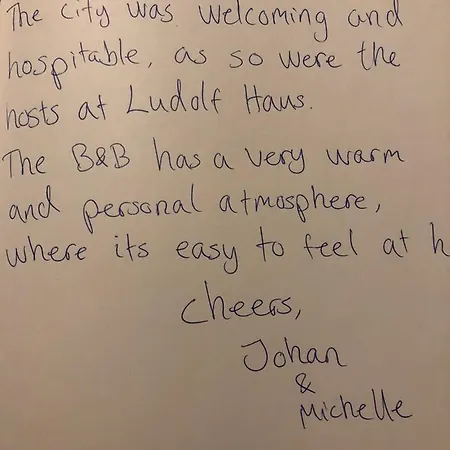 The city was welcoming and
hospitable, as so were the
hosts at Ludolf Haus.
The B&B has a very warm
and personal atmosphere,
where its easy to feel at h
Cheers,
Johan
&
Michelle